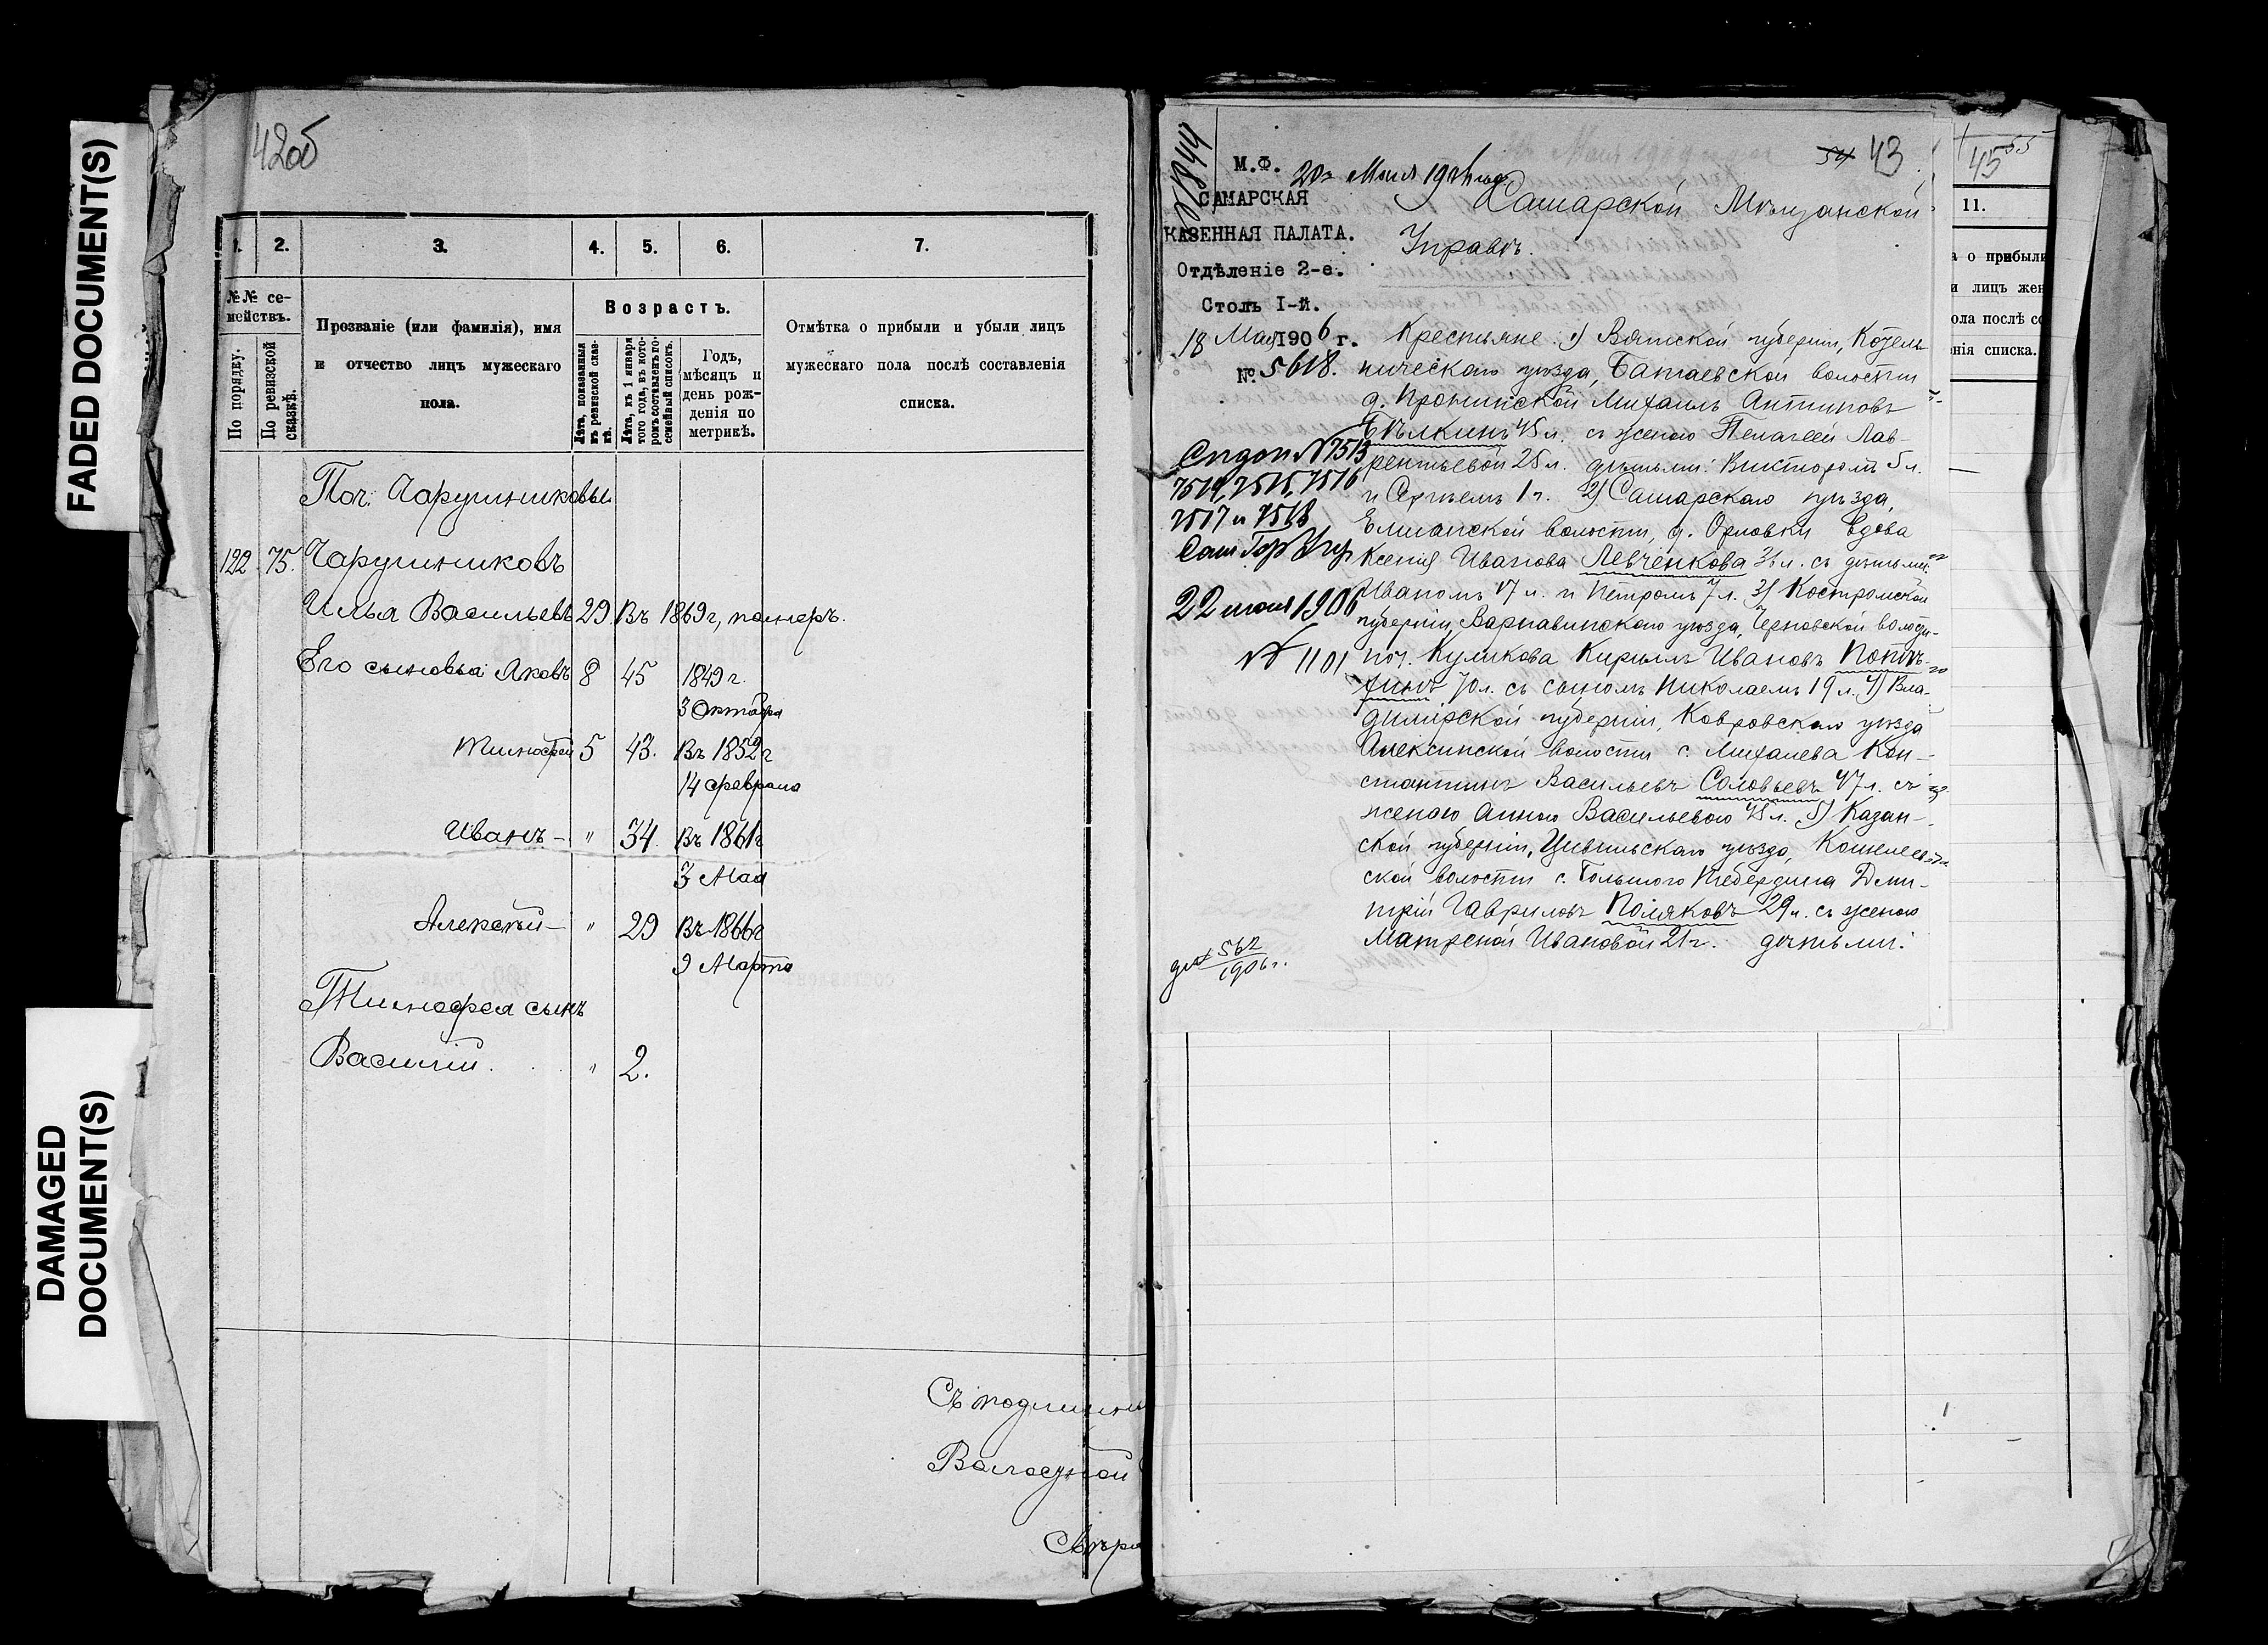 FADED DOCUMENT(S)
DAMAGED
DOCUMENT(S)
42об
1. 2. 3. 4. 5. 6. 7.
№№ се-
мействъ.
По порядку.
По ревизской
сказкѣ.
Прозваніе (или фамилія), имя
и отчество лицъ мужескаго
пола.
Возрастъ.
Лѣта, показанныя
въ ревизской сказ-
кѣ.
Лѣта, къ 1 января
того года, въ кото-
ромъ составленъ по-
семейный списокъ.
Годъ,
мѣсяцъ и
день рож-
денія по
метрикѣ.
Отмѣтка о прибыли и убыли лицъ
мужескаго пола послѣ составленія
списка.
Поч. Чарушниковы
122. 75. Чарушниковъ
Илья Васильевъ 29 Въ 1869 г, померъ.
Его сыновья Яковъ 8 45 1849 г.
3 Октября
Тимофей 5 43. Въ 1852 г
14 февраля
Иванъ — " 34. Въ 1861 г
3 Мая
Алексѣй — " 29 Въ 1866 г
9 Марта
Тимофея сынъ
Василій. " 2.
Съ подлинны
Волостной
№ 1844
М.Ф. 20го Мая 1906 года
САМАРСКАЯ
КАЗЕННАЯ ПАЛАТА.
Отдѣленіе 2-е.
Столъ I-й.
18 Мая 1906 г.
№ 5618.
54 43
Самарской Мѣщанской
Управѣ.
Крестьяне: 1) Вятской губерніи, Котель-
ническаго уѣзда, Батаевской волости
д. Пронинской Михаилъ Антиповъ
Бѣлкинъ 45 л. съ женою Пелагеей Лав-
рентьевой 25 л. дѣтьми: Викторомъ 5 л.
и Сергѣемъ 1 г. 2) Самарскаго уѣзда,
Елшанской волости, д. Орловки вдова
Ксенія Иванова Левченкова 36 л. съ дѣтьми:
Иваномъ 17 л. и Петромъ 7 л. 3) Костромской
губерніи, Варнавинскаго уѣзда, Черновской волости
поч. Куликова Кириллъ Ивановъ Потѣ-
хинъ 70 л. съ сыномъ Николаемъ 19 л. 4) Вла-
димірской губерніи, Ковровскаго уѣзда
Алексинской волости с. Михалева Кон-
стантинъ Васильевъ Соловьевъ 47 л. съ
женою Анною Васильевою 45 л. 5) Казан-
ской губерніи, Цивильскаго уѣзда, Кошелеев-
ской волости с. Большого Тебердина Дми-
трій Гавриловъ Поляковъ 29 л. съ женою
Матреной Ивановой 21 г. дѣтьми:
№ 7513
7514, 7515, 7516
7517 и 7518
Сам Гор Упр
1906
№ 1101
562
1906 г.
45 55
11.
а о прибыли
и лицъ жен
ола послѣ со
нія списка.